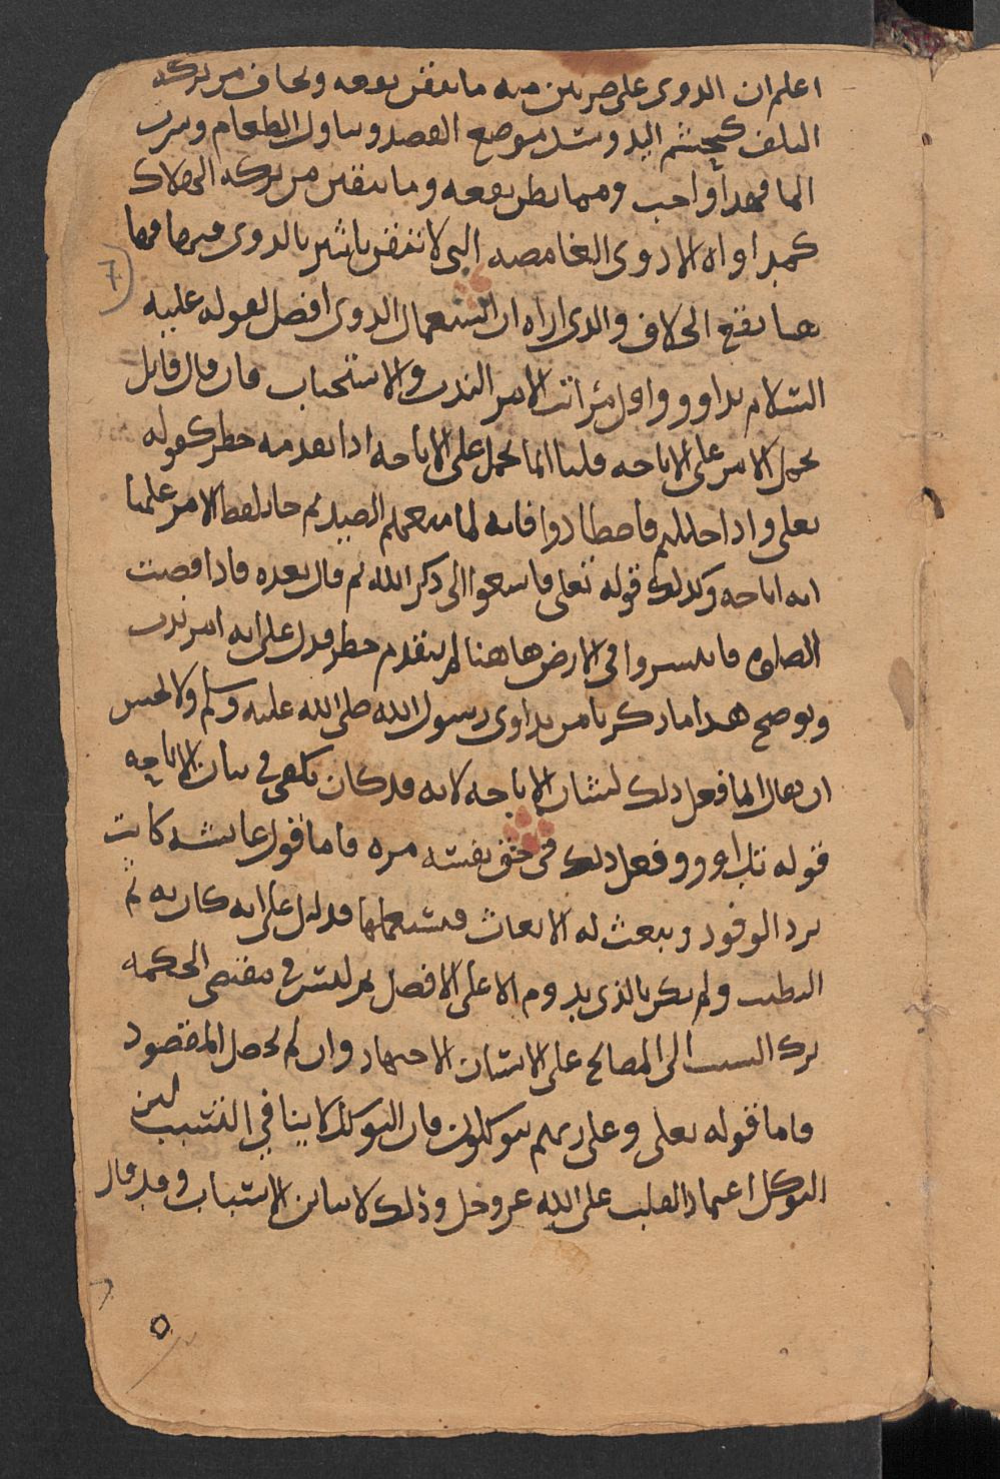 اعلم ان الدوى على ضربين منه ما يتيقن نفعه ويخاف من تركه
التلف كحشم اليد وشد موضع الفصد وتناول الطعام وشرب
الما فهذا واجب ومما يظن نفعه وما يتيقن من تركه الهلاك
كمداواه الادوى الغامضه التي لا تتيقن تاثير بالدوى فيها فها
هنا يقع الخلاف والذى اراه ان استعمال الدوى افضل لقوله عليه
السلام تداوو واقل مراتب الامر الندب والاستحباب فان قال قايل
يحمل الامر على الاباحه قلنا انما يحمل على الاباحه اذا تقدمه حظر كقوله
تعلى واذا حللتم فاصطادوا فانه لما منعهم الصيد ثم جا بلفظ الامر علمنا
انه اباحه وكذلك قوله تعلى فاسعوا الى ذكر الله ثم قال بعده فاذا قضيت
الصلوه فانتشروا في الارض هاهنا لم يتقدم حظر فدل على انه امر ندب
ويوضح هذا ما ذكرنا من تداوى رسول الله صلى الله عليه وسلم ولا يحسن
ان يقال انما فعل ذلك لشان الاباحه لانه قد كان يكفي في بيان الاباحه
قوله تداوو وفعل ذلك في حق نفسه مره فاما قول عايشه كانت
ترد الوفود وتبعث له الانعات فنستعملها فدليل على انه كان به ثم
التطبب ولم يكن بالذى يدوم الا على الافضل ثم ليس في مقتضى الحكمه
ترك السبب الى المصالح على الانسان الاجتهاد وان لم يحصل المقصود
فاما قوله تعلى وعلى ربهم يتوكلون فان التوكل لا ينافي التسبب لان
التوكل اعتماد القلب على الله عز وجل وذلك لا يباين الاسباب وقد قال
7